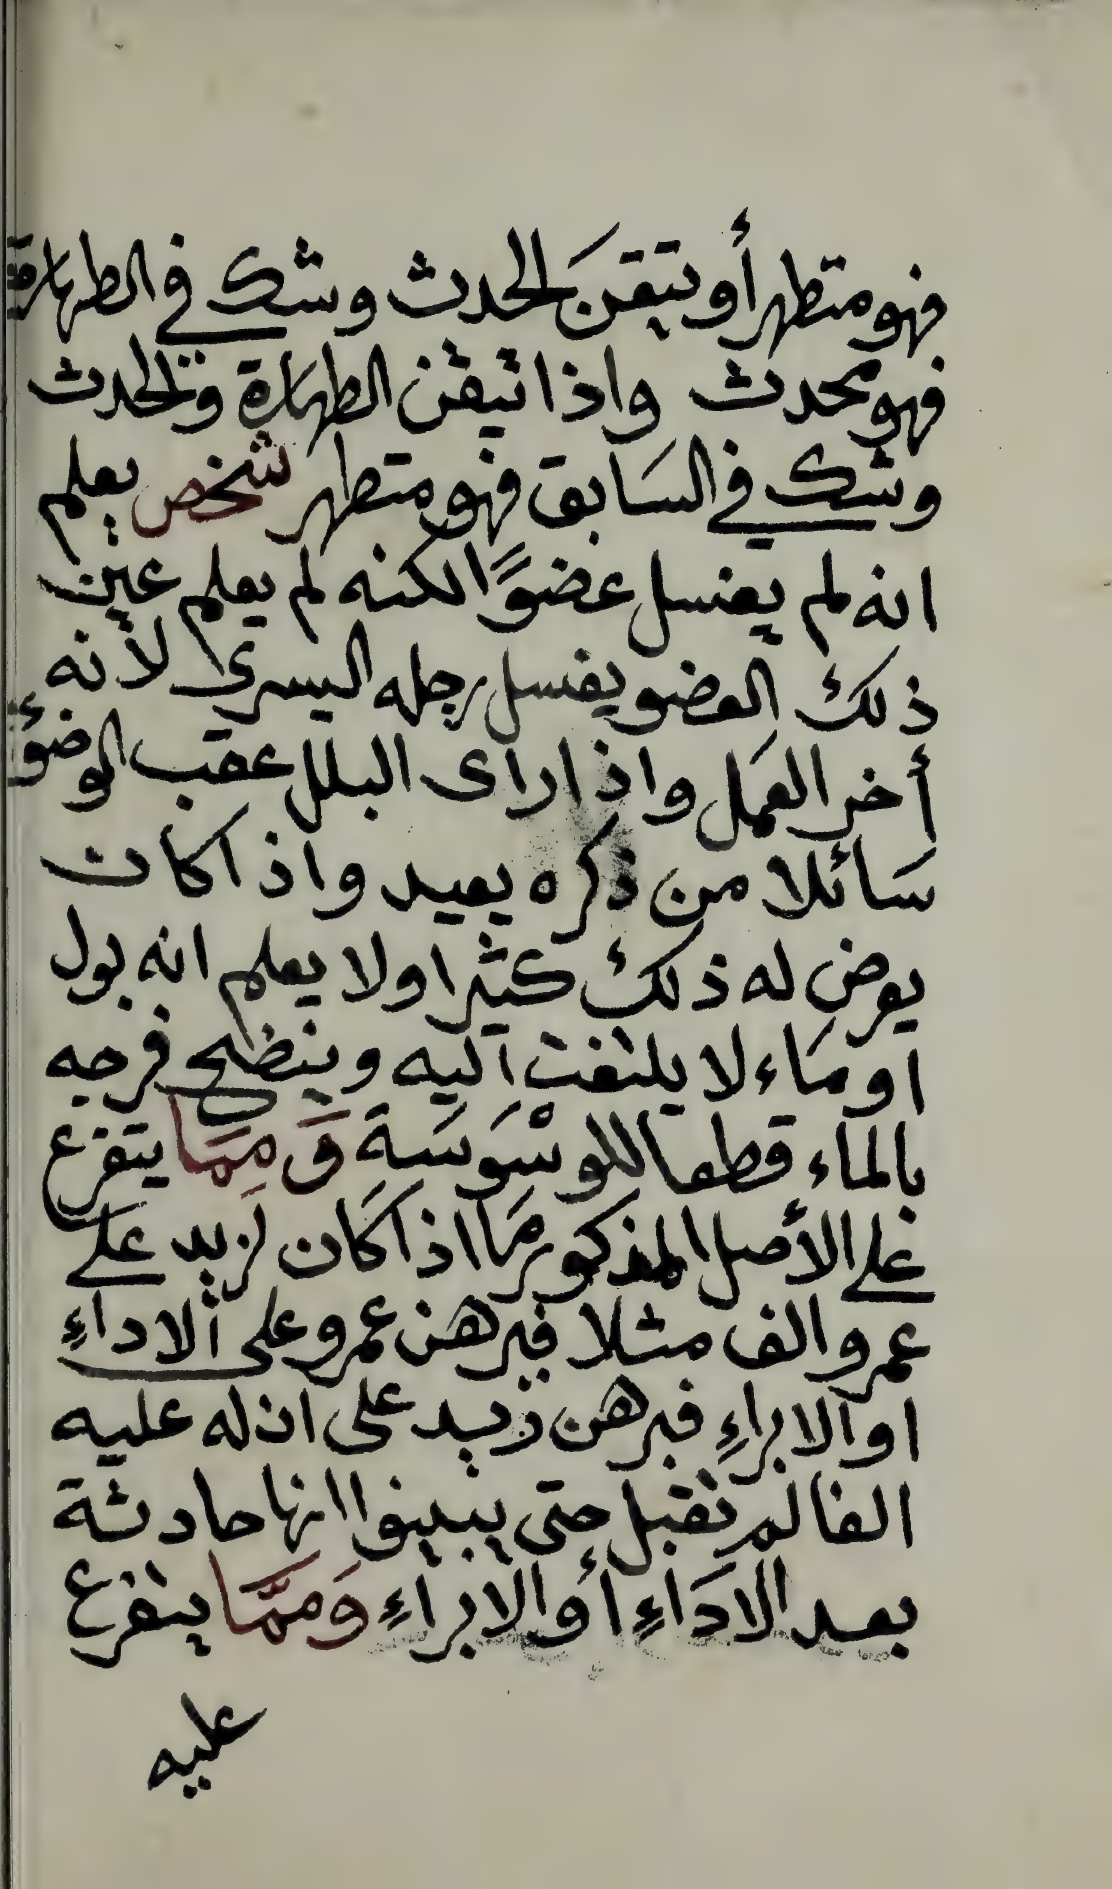 فهو متطهر أو تيقن الحدث وشك في الطهارة
فهو محدث واذا تيقن الطهارة والحدث
وشك في السابق فهو متطهر شخص يعلم
انه لم يغسل عضوًا لكنه لم يعلم عين
ذلك العضو يغسل رجله اليسرى لأنه
أخر العمل واذا رأى البلل عقب الوضؤ
سائلا من ذكره يعيد واذا كان
يعرض له ذلك كثيرا ولا يعلم انه بول
او ماء لا يلتفت اليه وينضح فرجه
بالماء قطعا للوسْوَسَة وَمِمَا يتفرع
على الأصل المذكور مَا اذا كان لزيد على
عمرو الف مثلا فبرهن عمرو على الاداءِ
او الابراءِ فبرهن زيد على ان له عليه
الفا لم تقبل حتى يبينوا انها حادثة
بعد الادَاءِ أو الابراءِ وَمِمَّا يتفرع
عليه